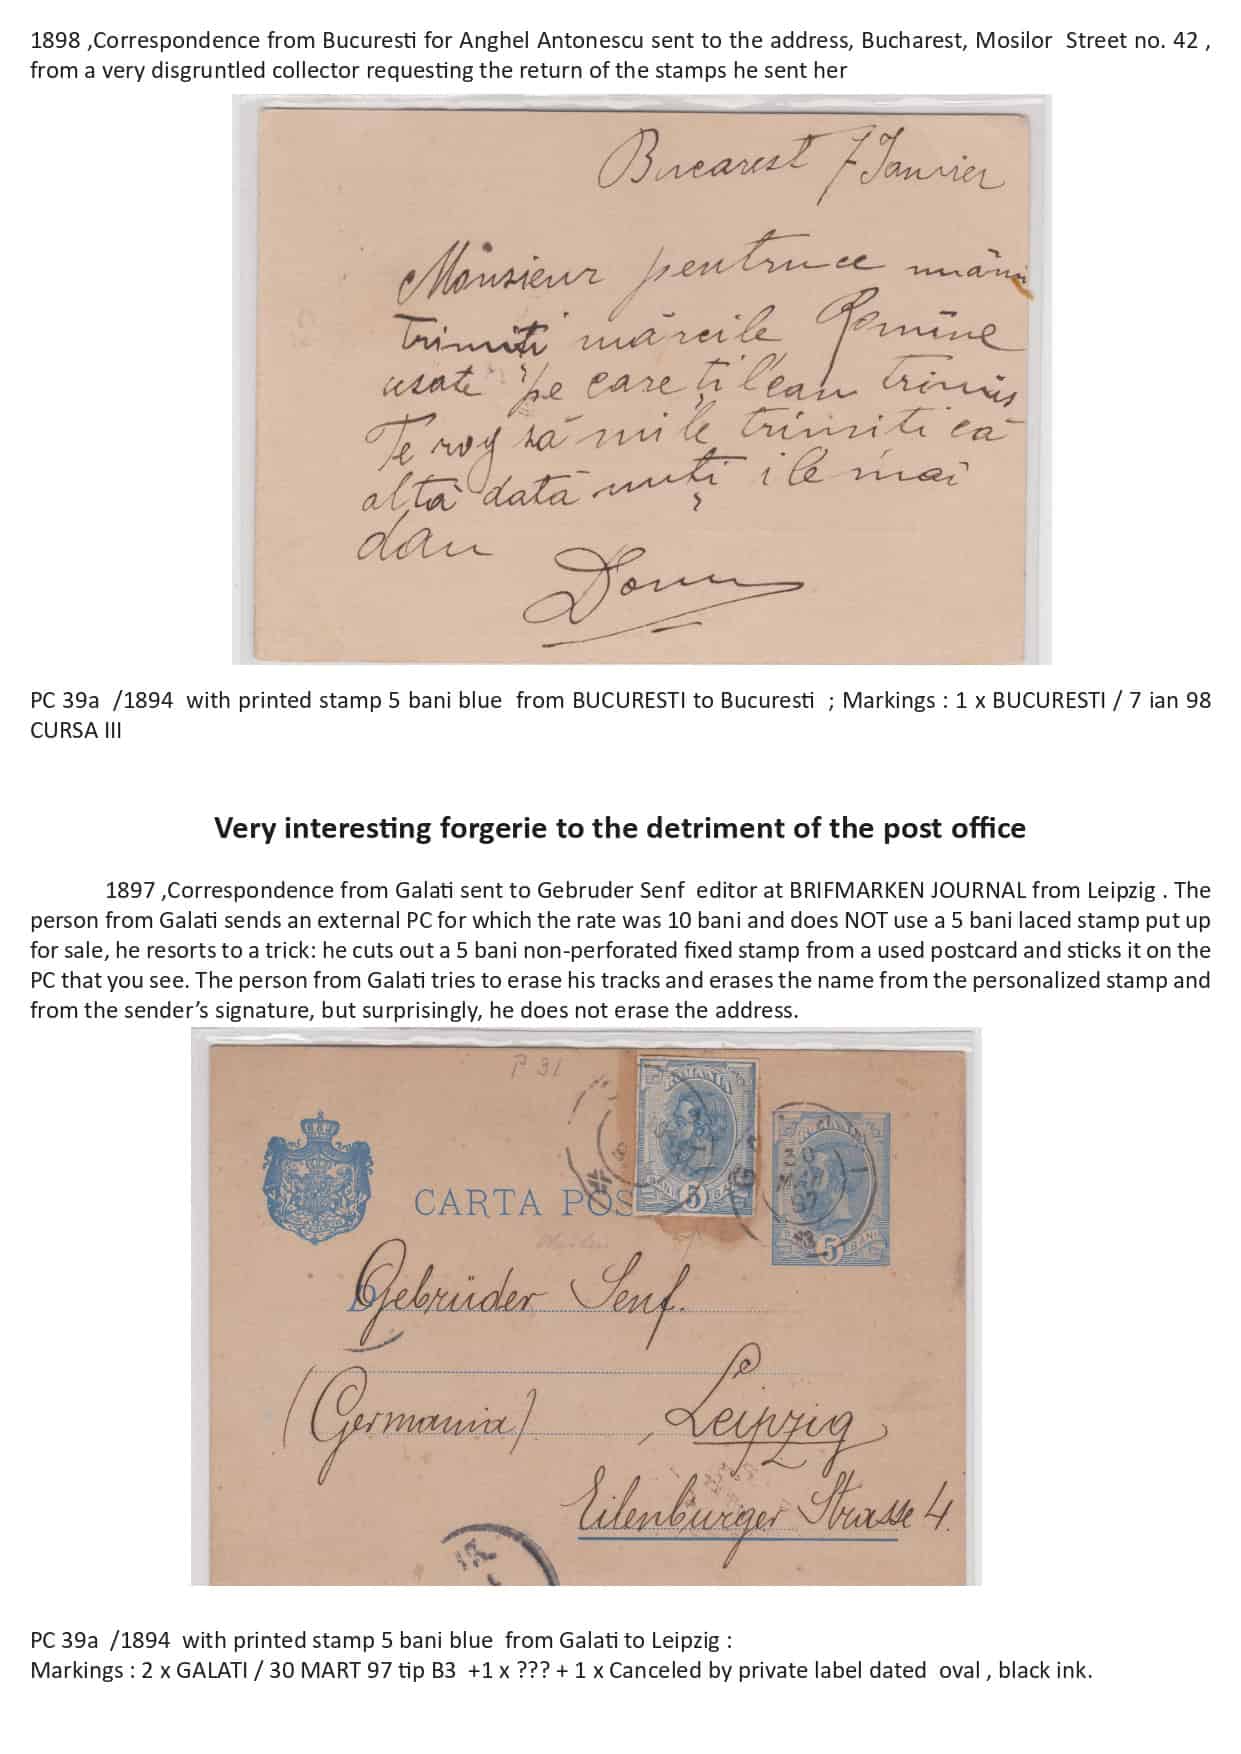 1898 ,Correspondence from Bucuresti for Anghel Antonescu sent to the address, Bucharest, Mosilor Street no. 42 ,
from a very disgruntled collector requesting the return of the stamps he sent her
Bucarest 7 Janvier
Monsieur pentruce numi
trimiți mărcile Romîne
usate pe care ți leam trimis
Te rog să mi le trimiti că
altă dată nuți ile mai
dau
PC 39a /1894 with printed stamp 5 bani blue from BUCURESTI to Bucuresti ; Markings : 1 x BUCURESTI / 7 ian 98
CURSA III
Very interesting forgerie to the detriment of the post office
1897 ,Correspondence from Galati sent to Gebruder Senf editor at BRIFMARKEN JOURNAL from Leipzig . The
person from Galati sends an external PC for which the rate was 10 bani and does NOT use a 5 bani laced stamp put up
for sale, he resorts to a trick: he cuts out a 5 bani non-perforated fixed stamp from a used postcard and sticks it on the
PC that you see. The person from Galati tries to erase his tracks and erases the name from the personalized stamp and
from the sender’s signature, but surprisingly, he does not erase the address.
P 31
ROMANIA
BANI 5 BANI
30
MAR
97
5 BANI
CARTA POS
Gebrüder Senf.
(Germania) , Leipzig
Eilenburger Strasse 4.
PC 39a /1894 with printed stamp 5 bani blue from Galati to Leipzig :
Markings : 2 x GALATI / 30 MART 97 tip B3 +1 x ??? + 1 x Canceled by private label dated oval , black ink.